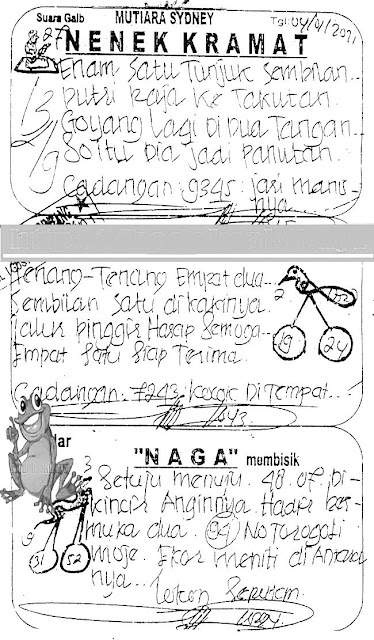 Suara Gaib MUTIARA SYDNEY Tgl: 04/4/2021
NENEK KRAMAT
27
Enam Satu Tunjuk Sembilan..
Putri Raja Ke Takutan.
Goyang Lagi Di Dua Tangan..
80 Itu Dia Jadi Panutan.
13
19
Cadangan: 9345: jari manis-
nya..
Tenang-Tenang Empat dua..
Sembilan Satu di kakinya.
Jalur pinggir Harap Semoga...
Empat Satu Siap Terima.
2
19 24
Cadangan. 7243. Kosok Di Tempat..
"NAGA" membisik
3
Setuju menuju. 48. 07. Di-
kincir Anginnya. Harapi ber-
muka dua. 94 No
Ekor meniti di Antara-
nya...
9
31 52